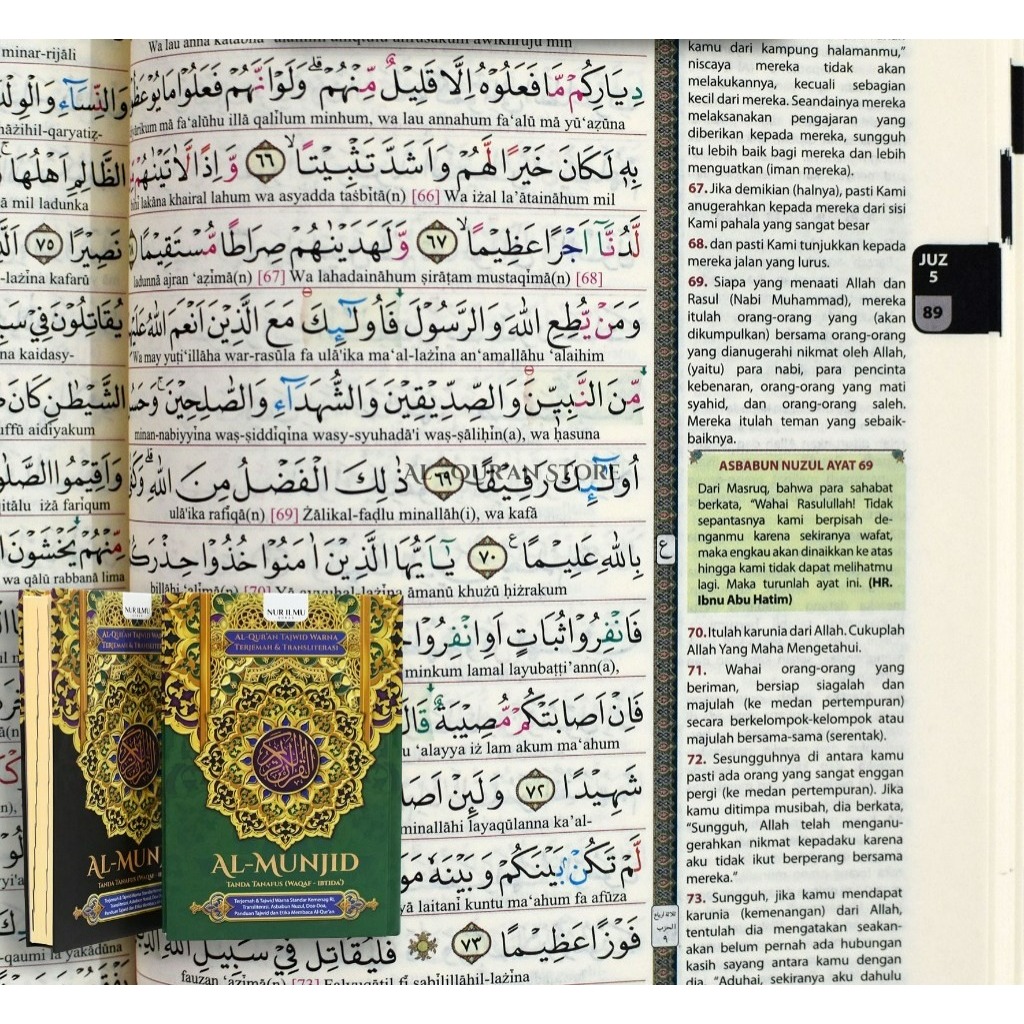 minar-rijāli
وَالنِّسَاۤءِ وَالْوِلْدَ
hāżihil-qaryatiẓ-
الظَّالِمِ اَهْلُهَا
mil ladunka
نَصِيْرًا ٧٥ اَلَّذ
-lażīna kafarū
يُقَاتِلُوْنَ فِيْ سَبِ
na kaidasy-
الشَّيْطٰنِ كَانَ ض
uffū aidiyakum
وَاَقِيْمُوا الصَّلٰو
itālu iżā farīqum
مِّنْهُمْ يَخْشَوْنَ
wa qālū rabbanā lima
-qaumi lā yakādūna
دِيَارِكُمْ مَّا فَعَلُوْهُ اِلَّا قَلِيْلٌ مِّنْهُمْۗ وَلَوْ اَنَّهُمْ فَعَلُوْا مَا يُوْعَظُ
yārikum mā fa‘alūhu illā qalīlum minhum, wa lau annahum fa‘alū mā yū‘aẓūna
بِهٖ لَكَانَ خَيْرًا لَّهُمْ وَاَشَدَّ تَثْبِيْتًاۙ ٦٦ وَّاِذًا لَّاٰتَيْنٰهُمْ
bihī lakāna khairal lahum wa asyadda taśbītā(n) [66] Wa iżal la’ātaināhum mil
لَّدُنَّآ اَجْرًا عَظِيْمًاۙ ٦٧ وَّلَهَدَيْنٰهُمْ صِرَاطًا مُّسْتَقِيْمًا
ladunnā ajran ‘aẓīmā(n) [67] Wa lahadaināhum ṣirāṭam mustaqīmā(n) [68]
وَمَنْ يُّطِعِ اللّٰهَ وَالرَّسُوْلَ فَاُولٰۤىِٕكَ مَعَ الَّذِيْنَ اَنْعَمَ اللّٰهُ عَلَيْ
Wa may yuṭi‘illāha war-rasūla fa ulā'ika ma‘al-lażīna an‘amallāhu ‘alaihim
مِّنَ النَّبِيّٖنَ وَالصِّدِّيْقِيْنَ وَالشُّهَدَاۤءِ وَالصّٰلِحِيْنَۚ وَحَسُ
minan-nabiyyīna waṣ-ṣiddīqīna wasy-syuhadā'i waṣ-ṣāliḥīn(a), wa ḥasuna
اُولٰۤىِٕكَ رَفِيْقًا ٦٩ ذٰلِكَ الْفَضْلُ مِنَ اللّٰهِۗ وَكَفٰى
ulā'ika rafīqā(n) [69] Żālikal-faḍlu minallāh(i), wa kafā
AL-QUR'AN STORE
بِاللّٰهِ عَلِيْمًا ࣖ ٧٠ يٰٓاَيُّهَا الَّذِيْنَ اٰمَنُوْا خُذُوْا حِذْرَكُ
billāhi ‘alīmā(n) [70] Yā ayyuhal-lażīna āmanū khużū ḥiżrakum
فَانْفِرُوْا ثُبَاتٍ اَوِ انْفِرُوْا
minkum lamal layubaṭṭi'ann(a),
فَاِنْ اَصَابَتْكُمْ مُّصِيْبَةٌ قَالَ
‘alayya iż lam akum ma‘ahum
شَهِيْدًا ٧٢ وَلَىِٕنْ اَصَا
minallāhi layaqūlanna ka'al-
لَّمْ تَكُنْۢ بَيْنَكُمْ وَبَيْنَهٗ مَوَ
yā laitanī kuntu ma‘ahum fa afūza
فَوْزًا عَظِيْمًا ٧٣ ۞ فَلْيُقَاتِلْ فِيْ سَبِيْلِ اللّٰهِ الَّذِ
fauzan ‘aẓīmā(n) [73] Falyuqātil fī sabīlillāhil-lażīna
ع
kamu dari kampung halamanmu,”
niscaya mereka tidak akan
melakukannya, kecuali sebagian
kecil dari mereka. Seandainya mereka
melaksanakan pengajaran yang
diberikan kepada mereka, sungguh
itu lebih baik bagi mereka dan lebih
menguatkan (iman mereka).
67. Jika demikian (halnya), pasti Kami
anugerahkan kepada mereka dari sisi
Kami pahala yang sangat besar
68. dan pasti Kami tunjukkan kepada
mereka jalan yang lurus.
69. Siapa yang menaati Allah dan
Rasul (Nabi Muhammad), mereka
itulah orang-orang yang (akan
dikumpulkan) bersama orang-orang
yang dianugerahi nikmat oleh Allah,
(yaitu) para nabi, para pencinta
kebenaran, orang-orang yang mati
syahid, dan orang-orang saleh.
Mereka itulah teman yang sebaik-
baiknya.
ASBABUN NUZUL AYAT 69
Dari Masruq, bahwa para sahabat
berkata, “Wahai Rasulullah! Tidak
sepantasnya kami berpisah de-
nganmu karena sekiranya wafat,
maka engkau akan dinaikkan ke atas
hingga kami tidak dapat melihatmu
lagi. Maka turunlah ayat ini. (HR.
Ibnu Abu Hatim)
70. Itulah karunia dari Allah. Cukuplah
Allah Yang Maha Mengetahui.
71. Wahai orang-orang yang
beriman, bersiap siagalah dan
majulah (ke medan pertempuran)
secara berkelompok-kelompok atau
majulah bersama-sama (serentak).
72. Sesungguhnya di antara kamu
pasti ada orang yang sangat enggan
pergi (ke medan pertempuran). Jika
kamu ditimpa musibah, dia berkata,
“Sungguh, Allah telah menganu-
gerahkan nikmat kepadaku karena
aku tidak ikut berperang bersama
mereka.”
73. Sungguh, jika kamu mendapat
karunia (kemenangan) dari Allah,
tentulah dia mengatakan seakan-
akan belum pernah ada hubungan
kasih sayang antara kamu dengan
dia, “Aduhai, sekiranya aku dahulu
JUZ
5
89
NUR ILMU
AL-QUR'AN TAJWID WARNA
TERJEMAH & TRANSLITERASI
AL-MUNJID
TANDA TANAFUS (WAQAF - IBTIDA')
Terjemah & Tajwid Warna Standar Kemenag RI,
Transliterasi, Asbabun Nuzul, Doa-Doa,
Panduan Tajwid dan Etika Membaca Al-Qur'an
NUR ILMU
AL-QUR'AN TAJWID W
TERJEMAH & TRANSLITER
AL-MUN
TANDA TANAFUS (WAQAF - IB